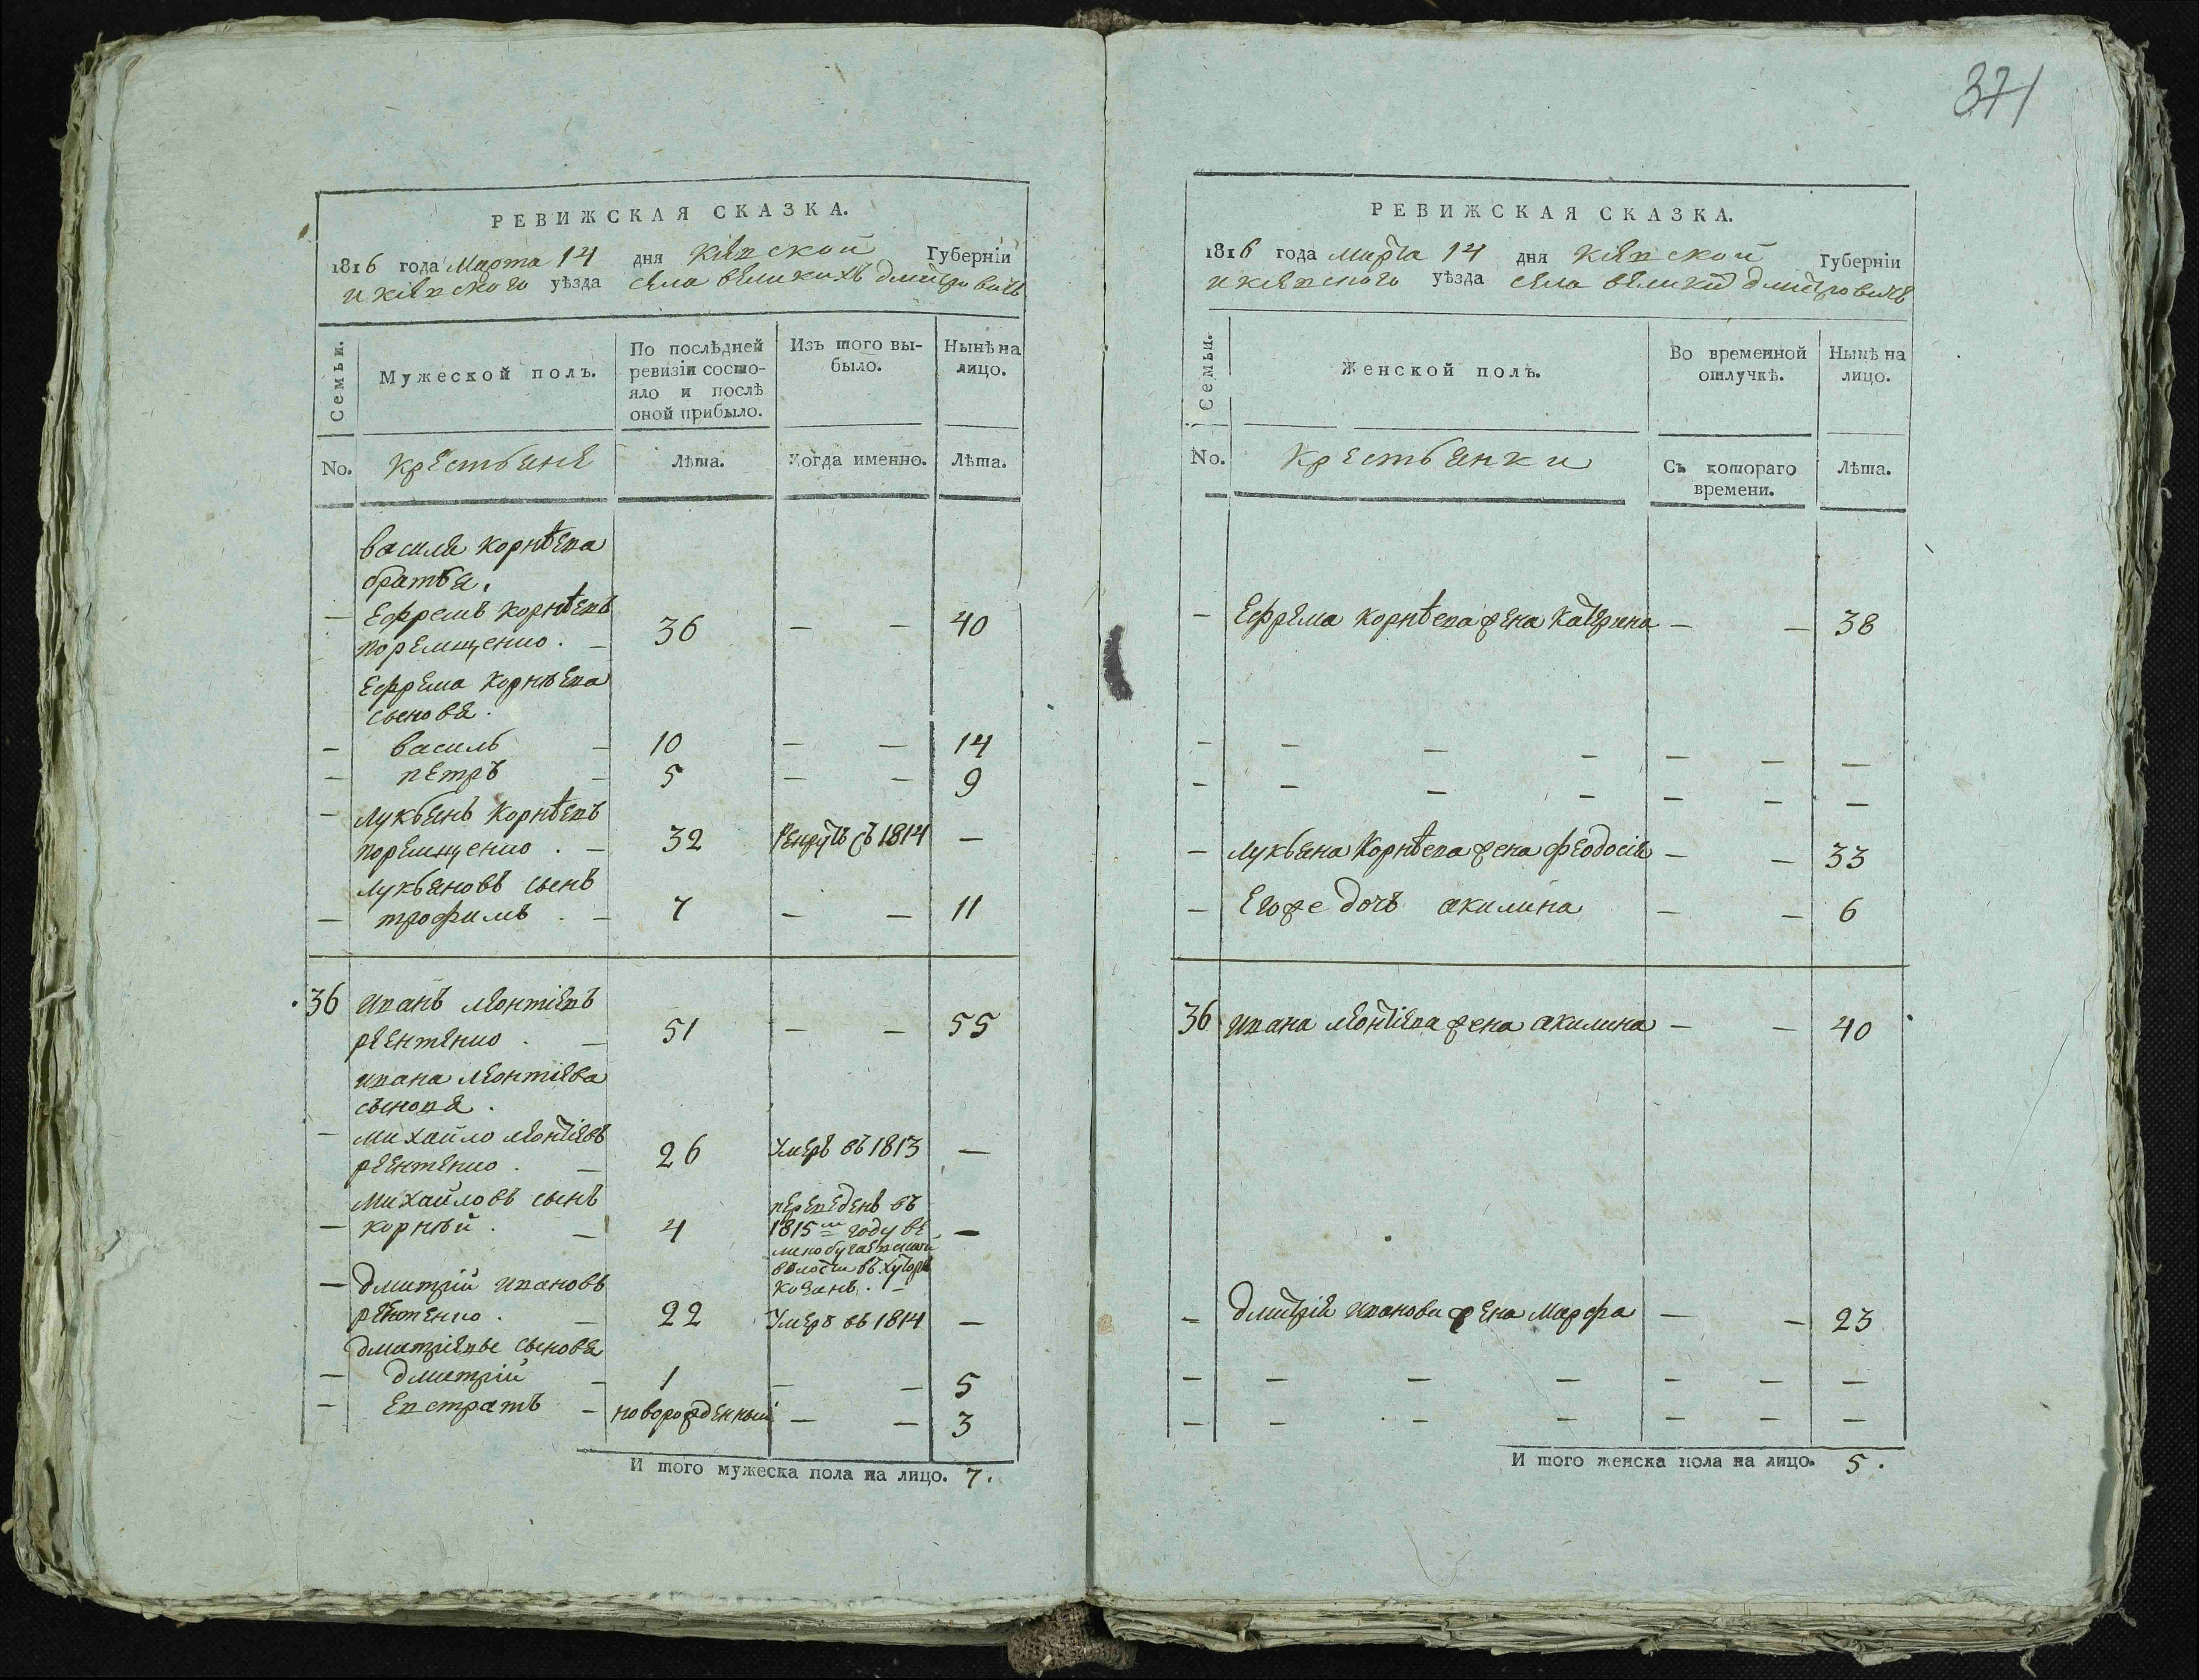 371
РЕВИЖСКАЯ СКАЗКА.
1816 года Марта 14 дня Кіевской Губерніи
и Кіевского уѣзда села великихъ дмитровичъ
Семьи.
Мужеской полъ.
По послѣдней ревизіи состояло и послѣ оной прибыло.
Изъ того выбыло.
Нынѣ на лицо.
No.
крестьяне
Лѣта.
Когда именно.
Лѣта.
василя корнѣева
братья.
— Ефремъ корнѣевъ
поремщенко. — 36 — — 40
Ефрема Корнѣева
сыновя.
— василь — 10 — — 14
— петръ — 5 — — 9
— лукьянъ Корнѣевъ
поремщенко. — 32 Рекрутъ съ 1814 —
лукьяновъ сынъ
— трофимъ. — 7 — — 11
36 иванъ леонтіевъ
реентенко. — 51 — — 55
ивана леонтіева
сыновя.
— михайло леонтіевъ
реентенко. — 26 Умеръ въ 1813 —
михайловъ сынъ
— корнѣй. — 4 переведенъ въ —
1815м году
волости въ хуторъ
— дмитрій ивановъ
реентенко. — 22 Умеръ въ 1814 —
дмитріевы сыновя
— дмитрій — 1 — — 5
— Евстратъ — новорожденный — — 3
И того мужеска пола на лицо. 7.
РЕВИЖСКАЯ СКАЗКА.
1816 года марта 14 дня Кіевской Губерніи
и кіевского уѣзда села великих дмитровичъ
Семьи.
Женской полъ.
Во временной отлучкѣ.
Нынѣ на лицо.
No.
Крестьянки
Съ котораго времени.
Лѣта.
— Ефрема корнѣева жена катерина — — 38
— — — — — — —
— — — — — — —
— лукьяна Корнѣева жена феодосія — — 33
— Егоже дочъ акилина — — 6
36 ивана леонтіева жена акилина — — 40
— дмитрія иванова жена марфа — — 23
— — — — — — —
— — — — — — —
И того женска пола на лицо. 5.